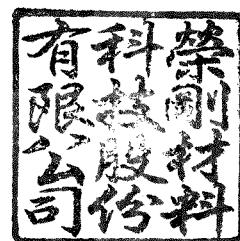 榮剛材料
科技股份
有限公司